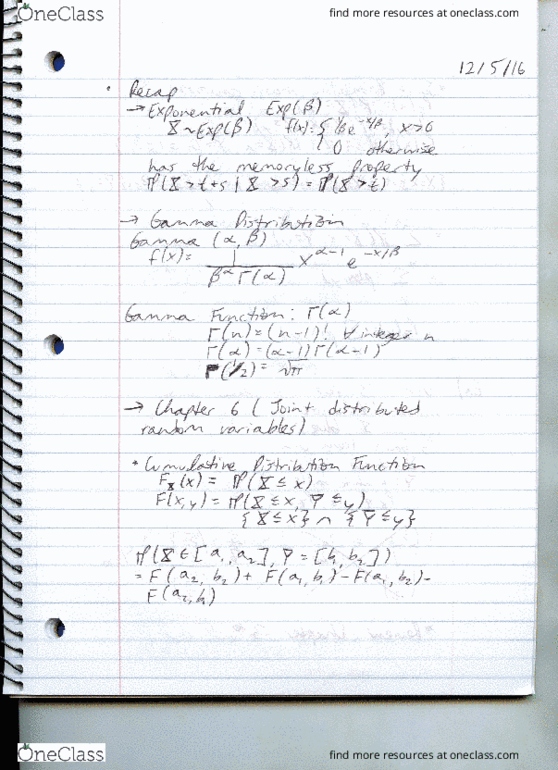 OneClass
find more resources at oneclass.com
12/5/16
• Recap
→ Exponential Exp(β)
X ~ Exp(β) f(x) = { 1/β e^-x/β, x>0
{ 0 otherwise
has the memoryless property
P(X > t+s | X > s) = P(X > t)
→ Gamma Distribution
Gamma (α, β)
f(x) = 1 / β^α Γ(α) x^α-1 e^-x/β
Gamma Function: Γ(α)
Γ(n) = (n-1)! ∀ integer n
Γ(α) = (α-1) Γ(α-1)
Γ(1/2) = √π
→ Chapter 6 ( Joint distributed
random variables)
* Cumulative Distribution Function
F_X(x) = P(X ≤ x)
F(x,y) = P(X ≤ x, Y ≤ y)
{X ≤ x} ∩ {Y ≤ y}
P(X ∈ [a₁, a₂], Y = [b₁, b₂])
= F(a₂, b₂) + F(a₁, b₁) - F(a₁, b₂) -
F(a₂, b₁)
OneClass
find more resources at oneclass.com